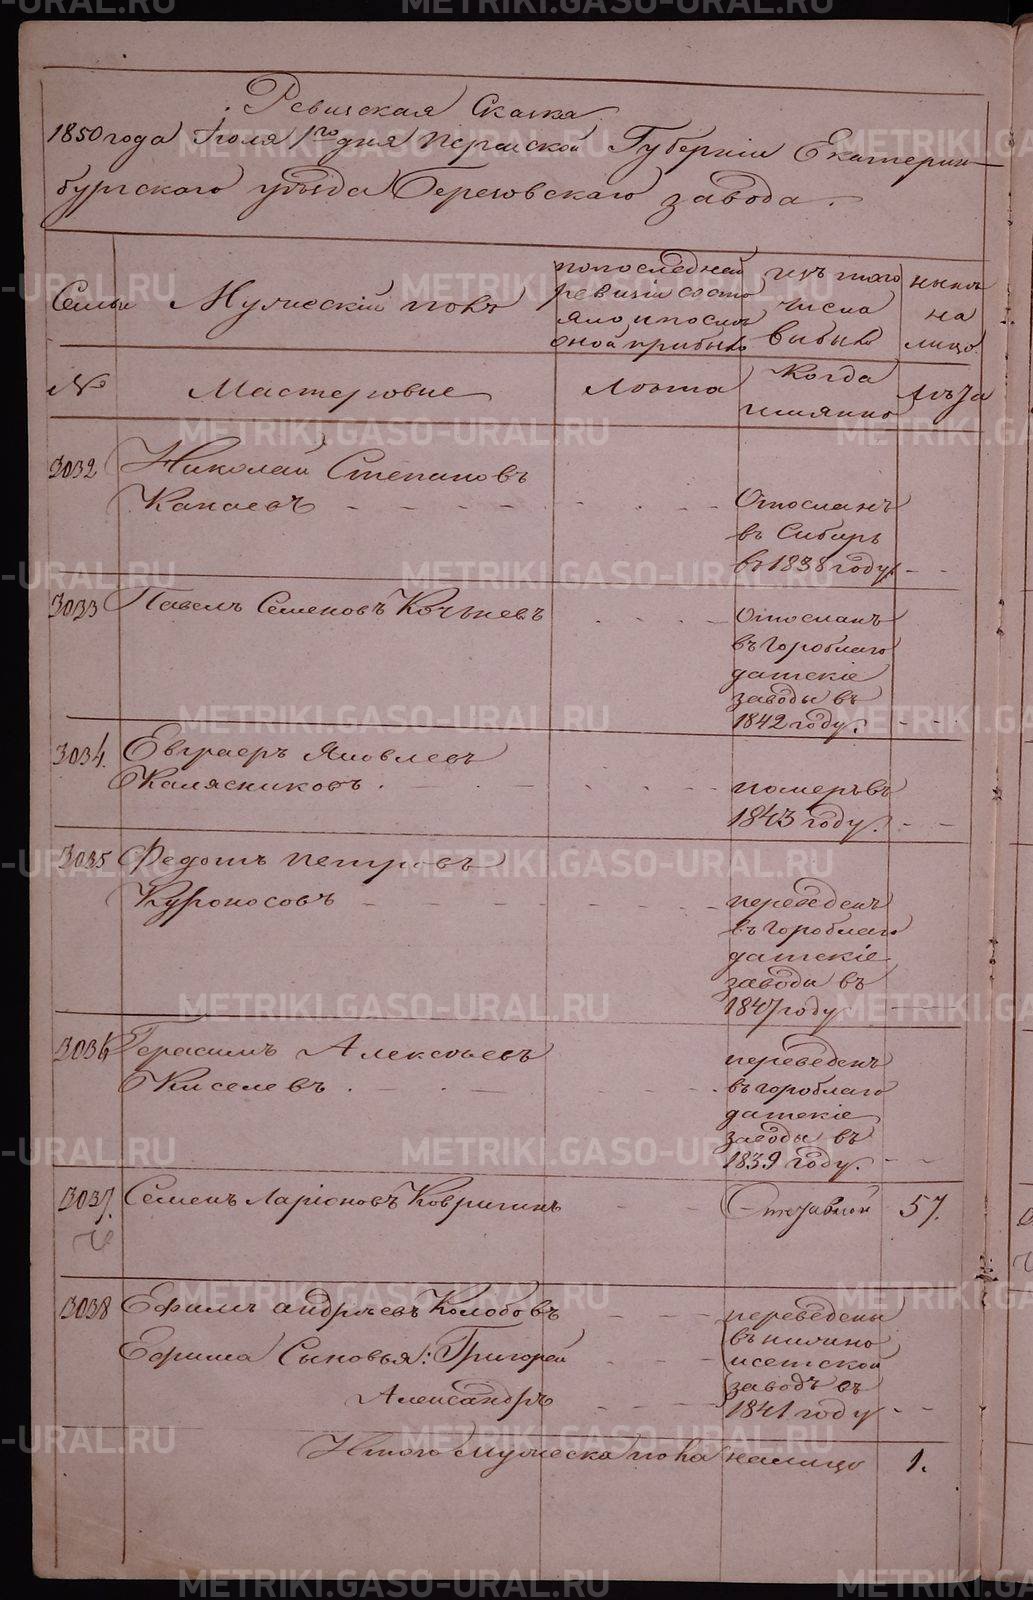 Ревизская Сказка
1850 года Июля 1го дня Пермской Губерніи Екатерин
бургскаго уѣзда Березовскаго завода.
Семьи
Мужескій полъ
по последней
ревизіи состо
яло и послѣ
оной прибыло
изъ того
числа
выбыло
нынѣ
на
лицо
№
Мастеровые
Лѣта
Когда
имянно
Лѣта
3032
Николай Степановъ
Капаевъ
Отосланъ
въ Сибирь
въ 1838 году
3033
Павелъ Семеновъ Кочневъ
Отосланъ
въ Гороблаго
датскіе
заводы въ
1842 году.
3034.
Евграфъ Яковлевъ
Калясниковъ
померъ въ
1843 году.
3035
Федотъ Петровъ
Курносовъ
переведенъ
въ Гороблаго
датскіе
заводы въ
1847 году
3036
Герасимъ Алексѣевъ
Киселевъ
переведенъ
въ гороблаго
датскіе
заводы въ
1839 году.
3037.
Семенъ Ларіоновъ Ковригинъ
Отставной
57.
3038
Ефимъ Андреевъ Колобовъ
переведены
въ нижно
Ефима Сыновья: Григорей
исетской
заводъ въ
Александръ
1841 году
Итого мужеска пола налицо
1.
METRIKI.GASO-URAL.RU